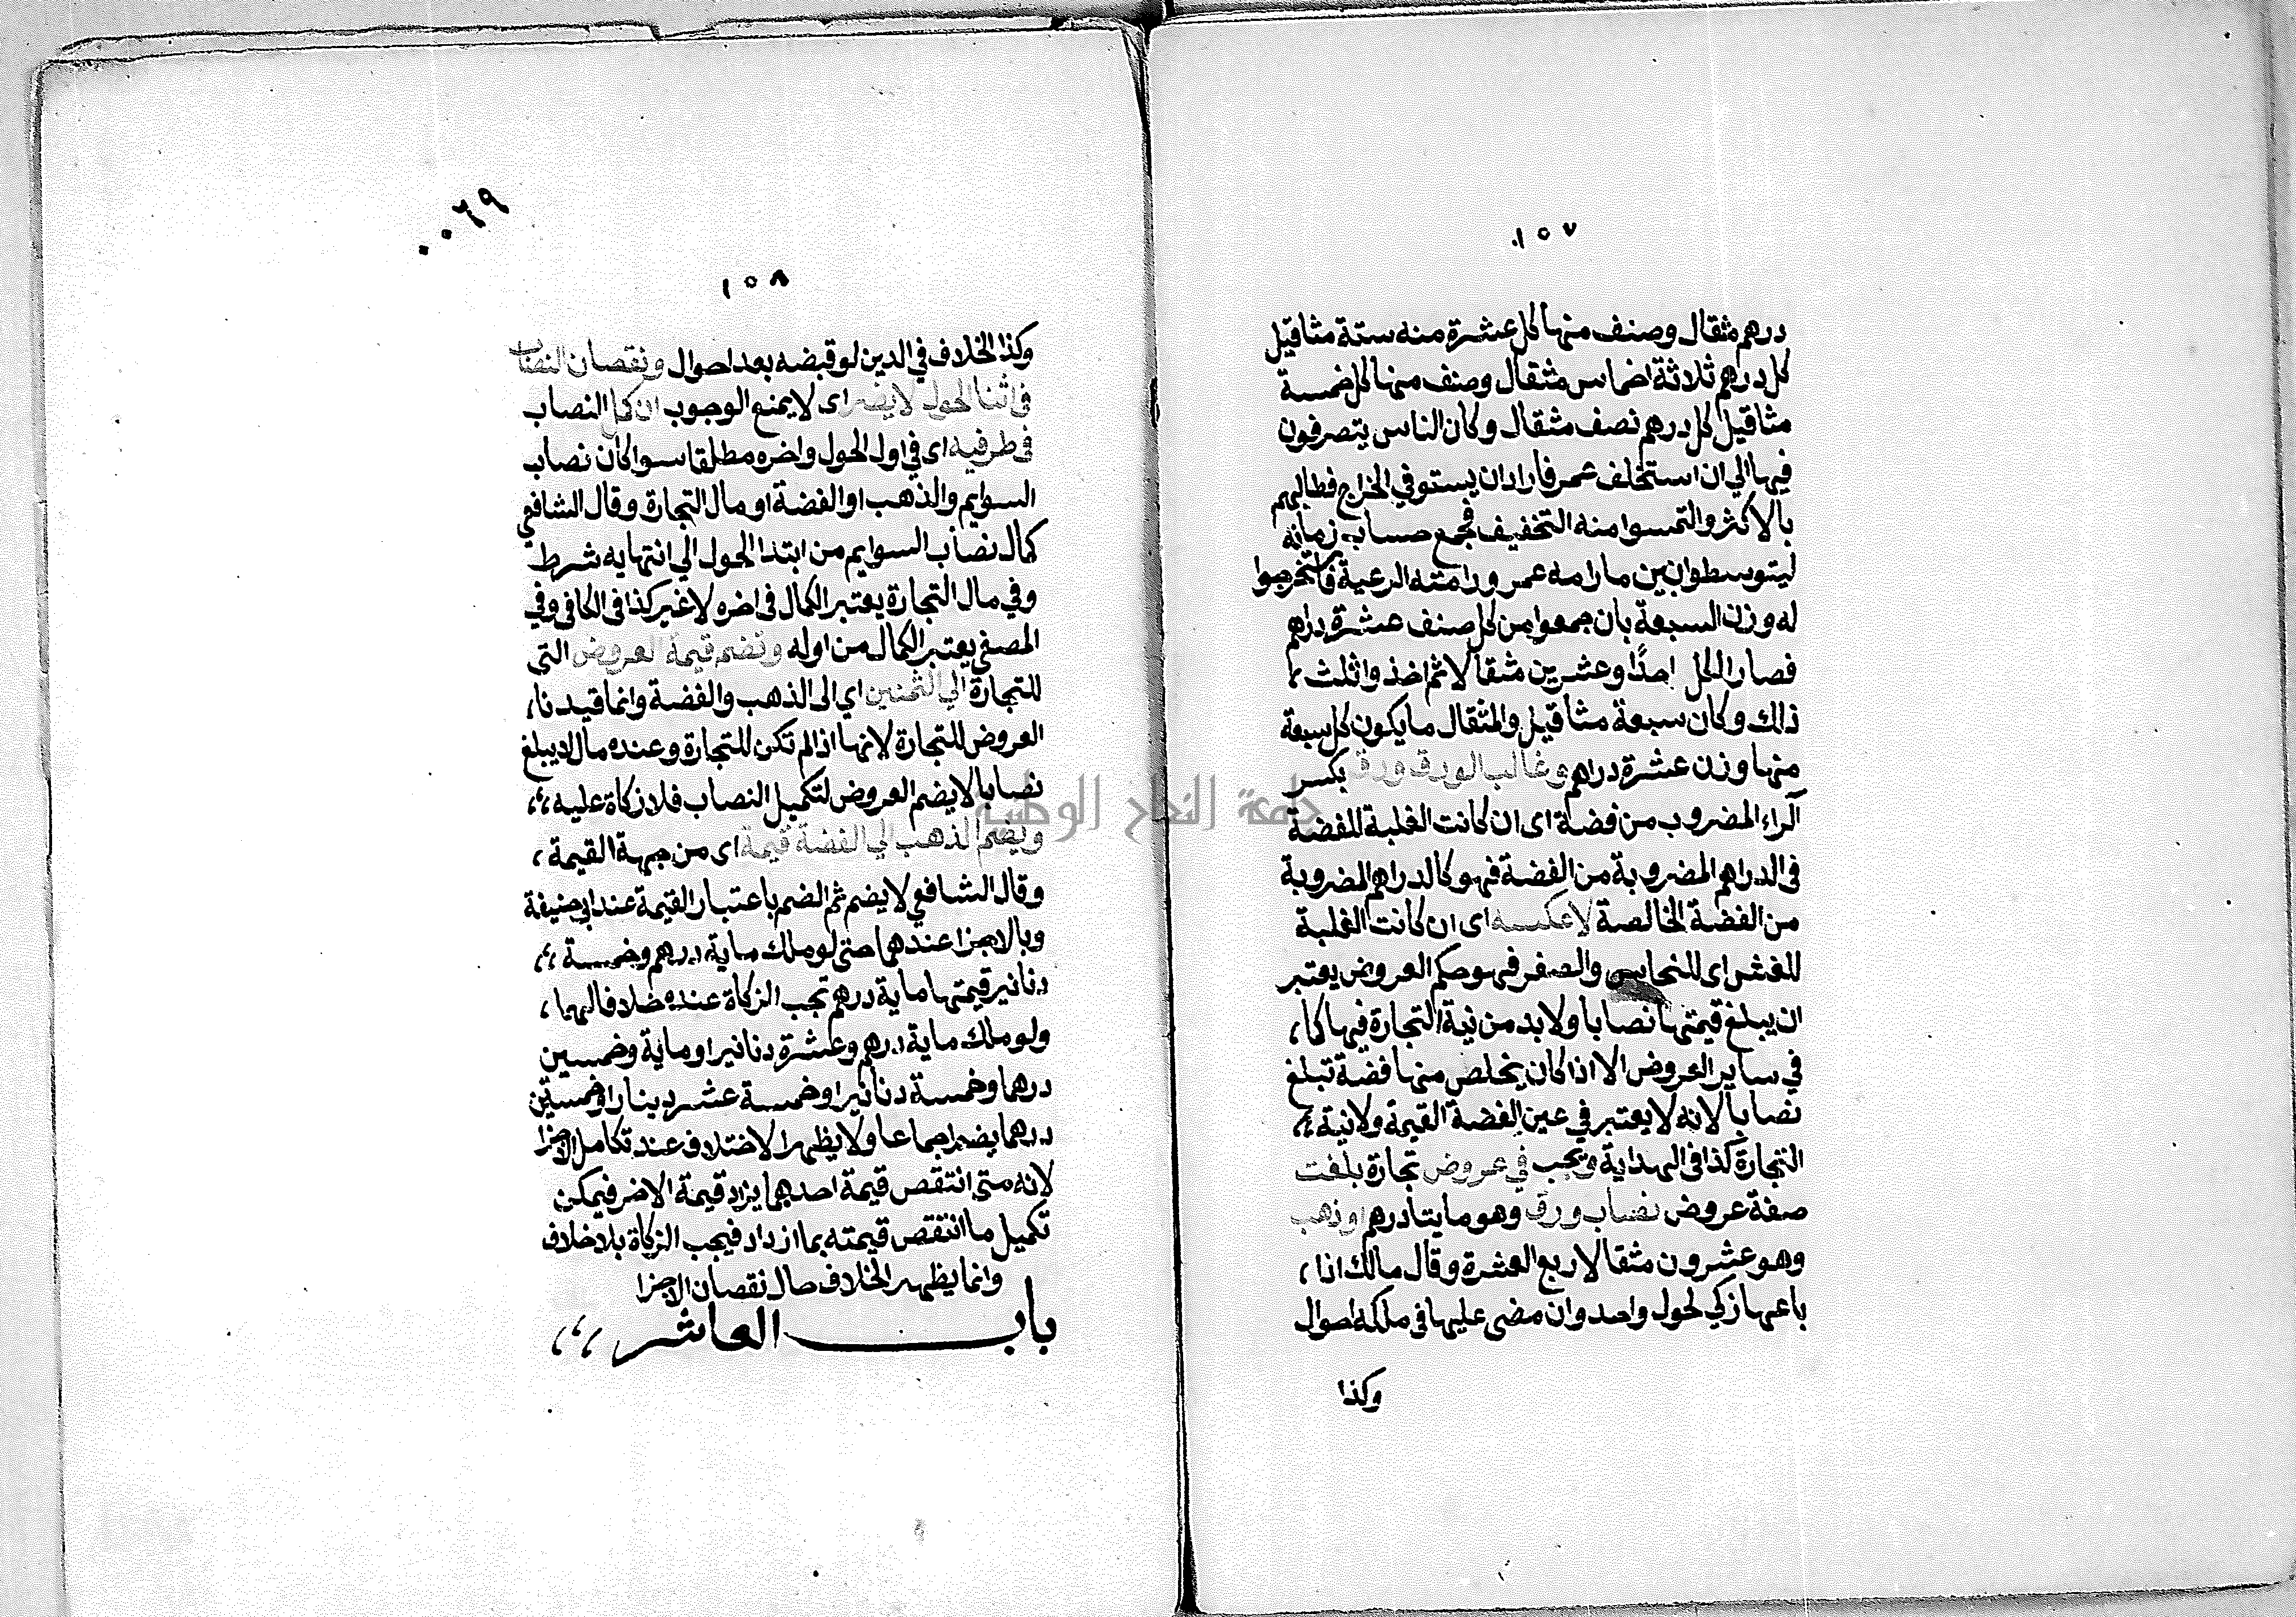 ١٥٧
درهم مثقال وصنف منها كل عشرة منه ستة مثاقيل
كل درهم ثلاثة اخماس مثقال وصنف منها كل خمسة
مثاقيل كل درهم نصف مثقال وكان الناس يتصرفون
فيها الي ان استخلف عمر فاراد ان يستوفي الخراج فطالبهم
بالاكثر والتمسوا منه التخفيف فجمع حساب زمانه
ليتوسطوا بين ما رامه عمر ورامته الرعية فاستخرجوا
له وزن السبعة بان جمعوا من كل صنف عشرة دراهم
فصار الكل احدًا وعشرين مثقالا ثم اخذوا ثلث،
ذلك وكان سبعة مثاقيل والمثقال ما يكون كل سبعة
منها وزن عشرة دراهم وغالب الورق ورق بكسر
الراء المضروب من فضة اى ان كانت الغلبة للفضة
فى الدراهم المضروبة من الفضة فهو كالدراهم المضروبة
من الفضة الخالصة لا عكسه اى ان كانت الغلبة
للغش اى للنحاس والصفر فهو حكم العروض يعتبر
ان يبلغ قيمتها نصابا ولا بد من نية التجارة فيها كما،
في ساير العروض الا اذا كان يخلص منها فضة تبلغ
نصابا لانه لا يعتبر في عين الفضة القيمة ولا نية،،
التجارة كذا فى الهداية ويجب في عروض تجارة بلغت
صفة عروض نصاب ورق وهو مايتا درهم او ذهب
وهو عشرون مثقالا ربع العشرة وقال مالك اذا،
باعها زكي لحول واحد وان مضى عليها فى ملكه احوال
وكذا
٠٠٦٩
١٥٨
وكذا الخلاف في الدين لو قبضه بعد احوال ونقصان النصاب
فى اثنا الحول لا يضر اى لا يمنع الوجوب ان كمل النصاب
فى طرفيه اى في اول الحول واخره مطلقا سوا كان نصاب
السوايم والذهب او الفضة او مال التجارة وقال الشافعي
كمال نصاب السوايم من ابتدا الحول الي انتهايه شرط
وفي مال التجارة يعتبر الكمال فى اخره لا غير كذا فى الكافى وفي
المصفى يعتبر الكمال من اوله وتضم قيمة العروض التى
للتجارة الي الثمنين اي الى الذهب والفضة وانما قيدنا،
العروض للتجارة لانها اذا لم تكن للتجارة وعنده مال لا يبلغ
نصابا لا يضم العروض لتكميل النصاب فلا زكاة عليه،،
ويضم الذهب الي الفضة قيمة اى من جهة القيمة،
وقال الشافعي لا يضم ثم الضم باعتبار القيمة عند ابي حنيفة
وبالاجزا عندهما حتى لو ملك ماية درهم وخمسة،،
دنانير قيمتها ماية درهم تجب الزكاة عنده خلافا لهما،
ولو ملك ماية درهم وعشرة دنانير او ماية وخمسين
درهما وخمسة دنانير او خمسة عشر دينارا وخمسين
درهما يضم اجماعا ولا يظهر الاختلاف عند تكامل الاجزا
لانه متى انتقص قيمة احدهما يزاد قيمة الاخر فيمكن
تكميل ما انتقص قيمته بما ازداد فيجب الزكاة بلا خلاف
وانما يظهر الخلاف حال نقصان الاجزا
باب العاشر،،،
جامعة النجاح الوطنية